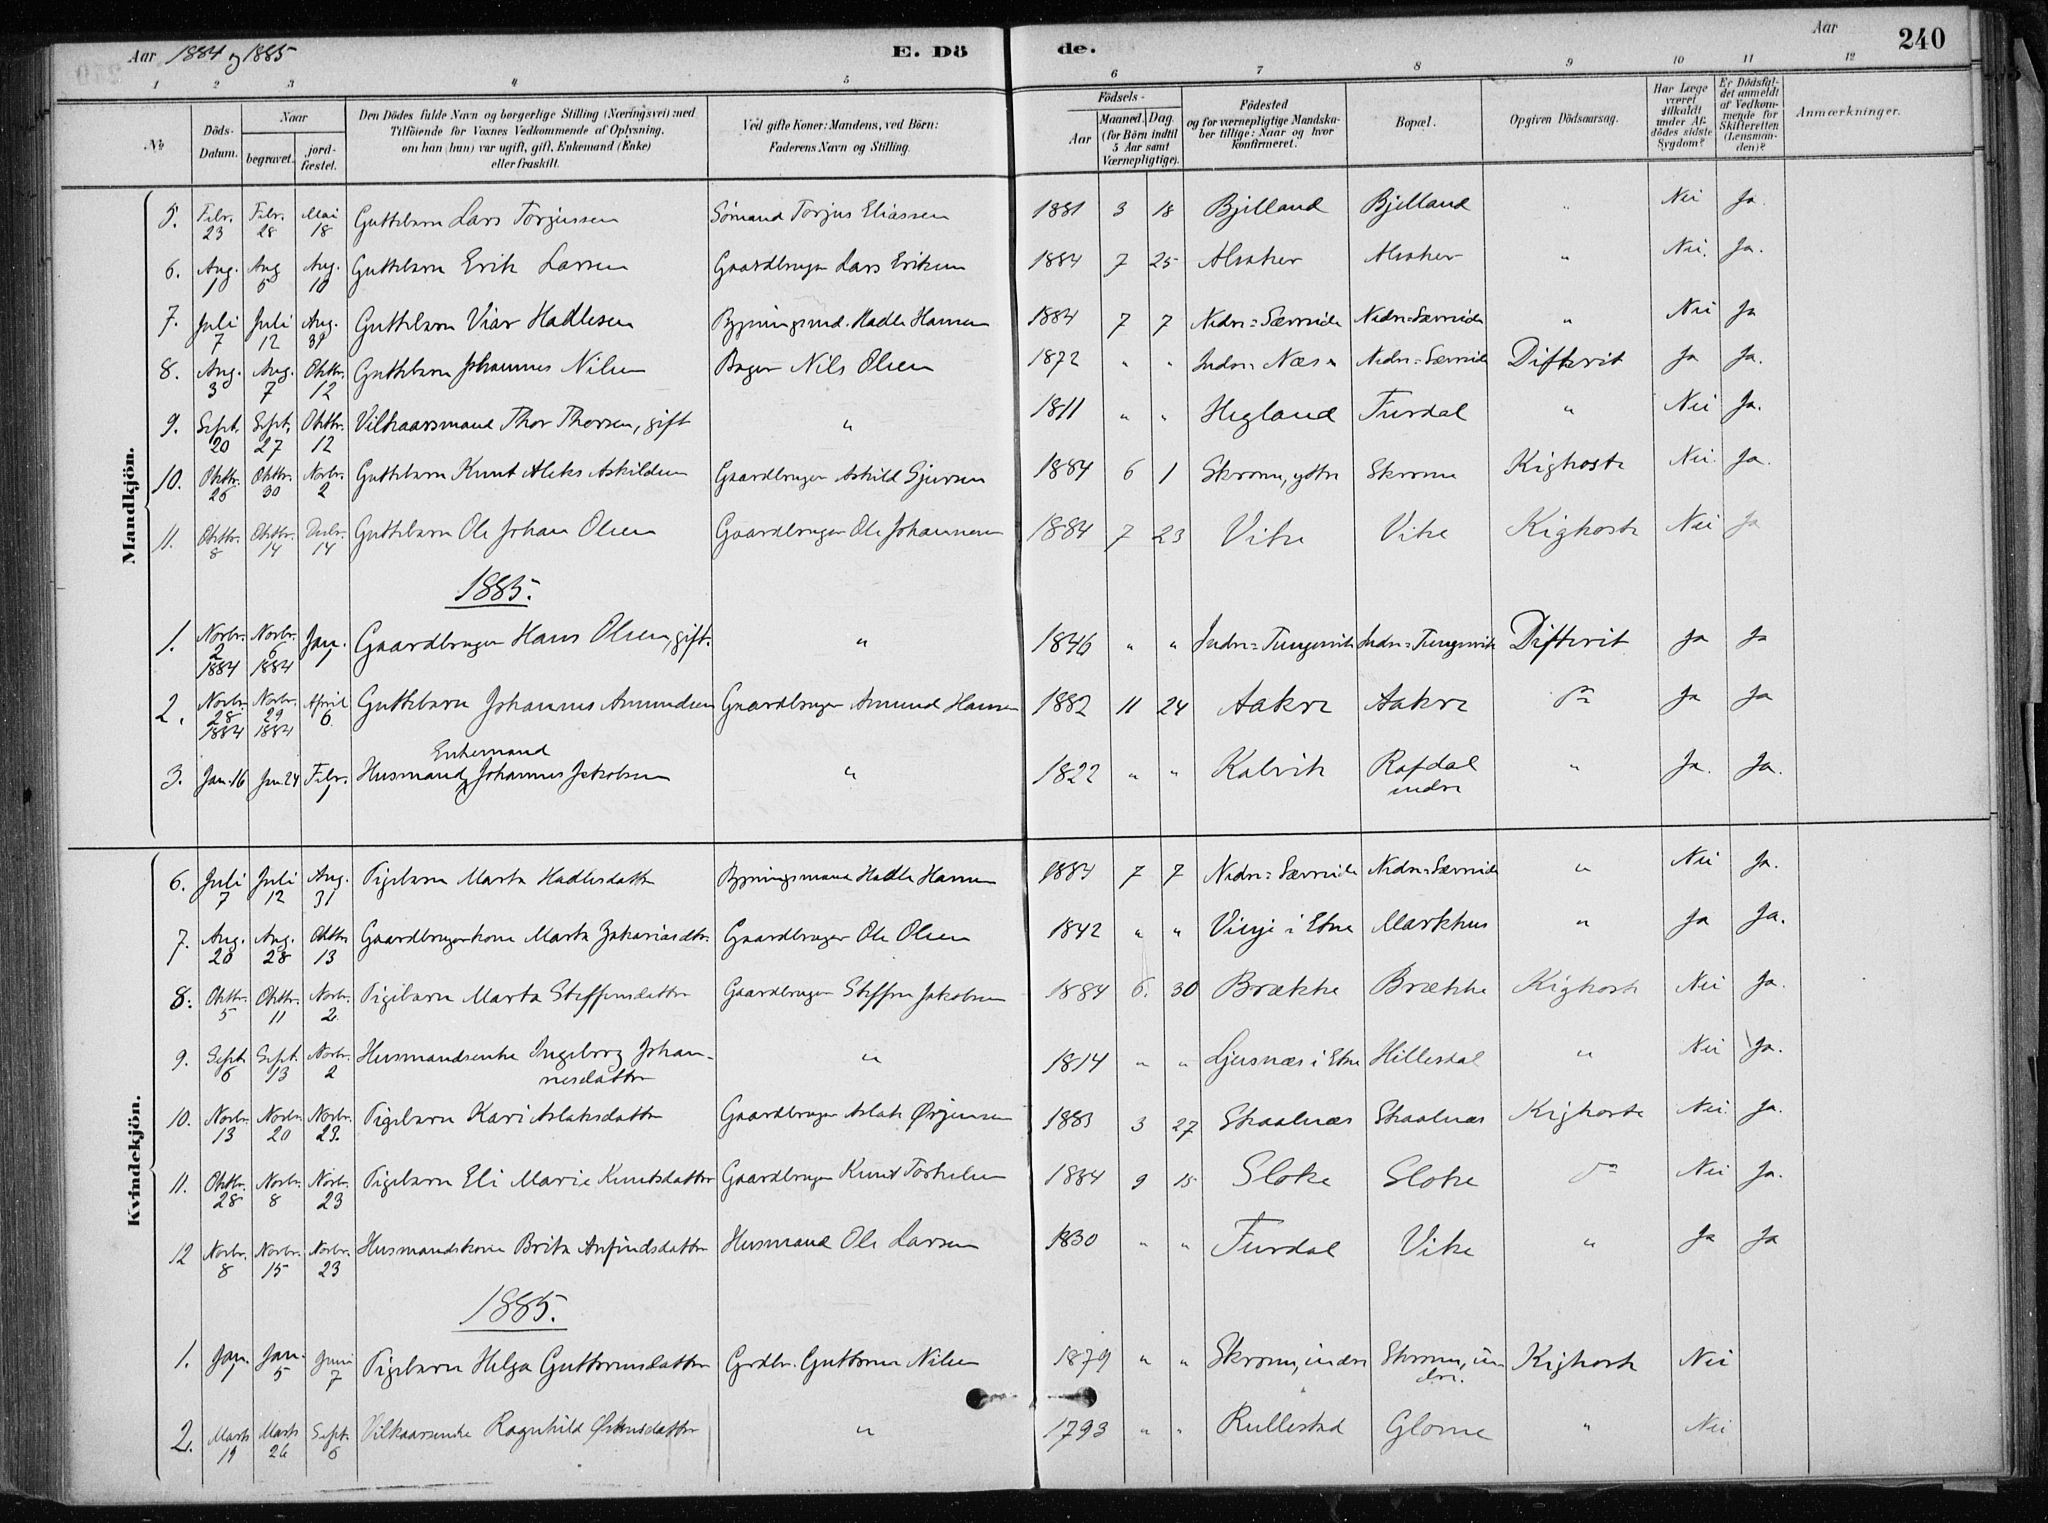 Aar 1884 og 1885
E. Dö
de.
Aar
240
1 2 3 4 5 6 7 8 9 10 11 12
No
Döds-Datum.
Naar
begravet.
jord-fæstet.
Den Dödes fulde Navn og borgerlige Stilling (Næringsvei) med
Tilföiende for Voxnes Vedkommende af Oplysning,
om han (hun) var ugift, gift, Enkemand (Enke)
eller fraskilt.
Ved gifte Koner: Mandens, ved Börn:
Faderens Navn og Stilling.
Födsels-
Aar
Maaned. Dag.
(for Börn indtil
5 Aar samt
Værnepligtige).
Födested
og for værnepligtige Mandska-
ber tillige: Naar og hvor
konfirmeret.
Bopæl.
Opgiven Dödsaarsag.
Har Læge
været
tilkaldt
under Af-
dödes sidste
Sygdom?
Er Dödsfal-
det anmeldt
af Vedkom-
mende for
Skifteretten
(Lensman-
den)?
Anmærkninger.
Mandkjön.
5. Febr. 23 Febr. 28 Mai 18 Guttebarn Lars Torjussen Sömand Torjus Eliassen 1881 3 18 Bjelland Bjelland " Nei Ja.
6. Aug. 1 Aug 5 Aug. 10 Guttebarn Erik Larsen Gaardbruger Lars Eriksen 1884 7 25 Alsaker Alsaker " Nei. Ja.
7. Juli 7 Juli 12 Aug. 31 Guttebarn Viar Hadlesen Bygningsmd. Hadle Hansen 1884 7 7 Nedre=Sævreide Nedre=Sævreide " Nei Ja
8. Aug. 3 Aug. 7 Oktbr. 12 Guttebarn Johannes Nilsen Bager Nils Olsen 1872 " " Indre Næs Nedre=Sævreide Difterit Ja Ja.
9. Sept. 20 Sept. 27 Oktbr. 12 Vilkaarsmand Thor Thorsen, gift " 1811 " " Hegland Furdal " Nei Ja.
10. Oktbr. 25 Oktbr. 30 Novbr. 2 Guttebarn Knut Aleks Askildsen Gaardbruger Askild Sjursen 1884 6 1 Skromme, ytre Skromme Kighoste Nei. Ja.
11. Oktbr. 8 Oktbr. 14 Decbr. 14 Guttebarn Ole Johan Olsen Gaardbruger Ole Johannesen 1884 7 23 Vike Vike Kighoste Nei Ja
1885.
1. Novbr. 2 1884 Novbr. 6 1884 Jan. 1 Gaardbruger Hans Olsen, gift. " 1846 " " Indre=Tungesvik Indre=Tungesvik Difterit Ja Ja
2. Novbr. 28 1884 Novbr. 29 1884 April 6. Guttebarn Johannes Amundsen Gaardbruger Amund Hansen 1882 11 24 Aakre Aakre do Ja Ja
Enkemand
3. Jan. 16 Jan 24 Febr. 1 Husmand Johannes Jakobsen " 1822 " " Kalvik Rafdal indre " Ja. Ja.
Kvindekjön.
6. Juli 7 Juli 12 Aug. 31 Pigebarn Marta Hadlesdatter Bygningsmand Hadle Hansen 1884 7 7 Nedre=Sævreide Nedre=Sævreide " Nei Ja.
7. Aug. 20 Aug. 28 Oktbr 13 Gaardbrugerkone Marta Zakariasdtr. Gaardbruger Ole Olsen 1842 " " Vinje i Etne Markhus " Ja Ja.
8. Oktbr. 5 Oktbr. 11 Novbr. 2. Pigebarn Marta Steffensdatter Gaardbruger Steffen Jakobsen 1884 6. 30 Brække Brække Kighoste Nei Ja.
9. Sept. 6 Sept. 13 Novbr. 2 Husmandsenke Ingeborg Johan-
nesdatter " 1814 " " Ljusnæs i Etne Hillestdal " Nei Ja.
10. Novbr. 13 Novbr. 20 Novbr. 23. Pigebarn Kari Aslaksdatter Gaardbruger Aslak Ørjensen 1883 3 27 Skaalnæs Skaalnæs Kighoste Nei. Ja.
11. Oktbr. 28 Novbr. 8 Novbr. 23 Pigebarn Eli Marie Knutsdatter Gaardbruger Knut Torkelsen 1884 9 15 Sloke Sloke do Nei Ja.
12 Novbr. 8 Novbr. 15 Novbr. 23 Husmandskone Brita Anfindsdatter Husmand Ole Larsen 1830 " " Furdal Vike " Ja Ja
1885.
1. Jan. 1 Jan. 5 Juni 7 Pigebarn Helga Guttormsdatter Grdbr. Guttorm Nilsen 1879 " " Skromme, indre Skromme, in-
dre. Kighoste Nei
2. Marts 19 Marts 26 Sept. 6 Vilkaarsenke Ragnhild Østensdatter " 1793 " " Rullestad Glome " Nei